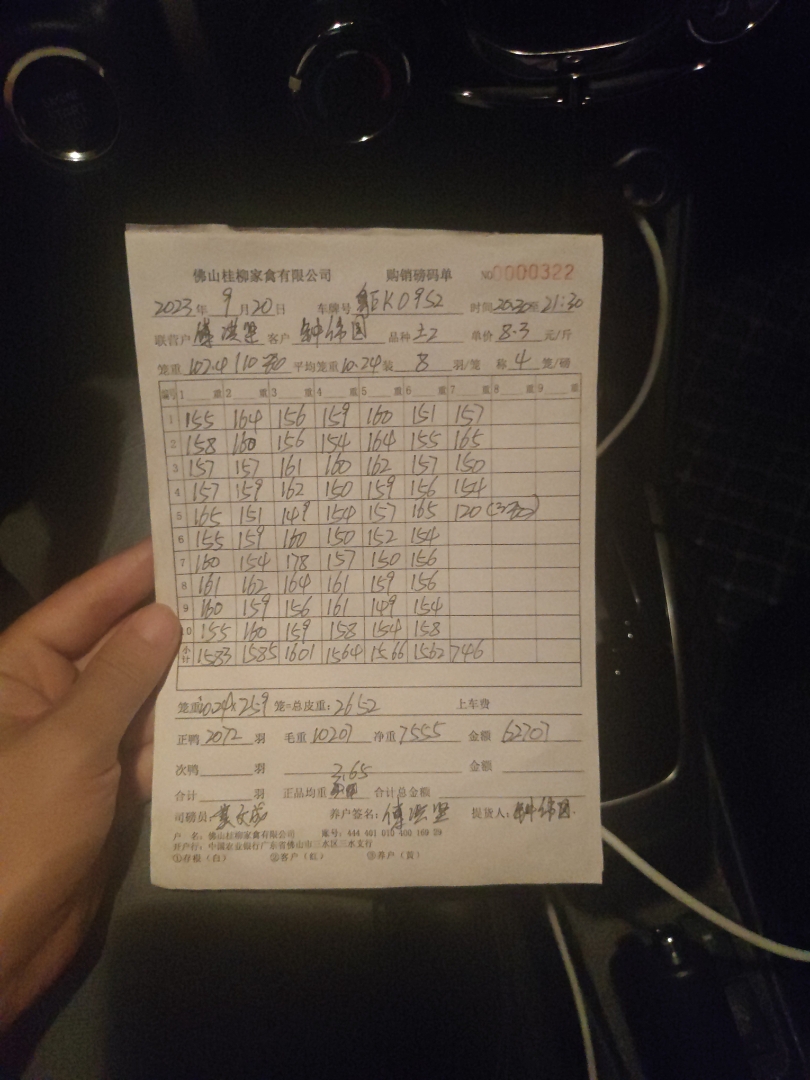 佛山桂柳家禽有限公司 购销磅码单 NO 0000322
2023年 9月20日 车牌号 EK0952 时间 20:30至21:30
联营户 客户 钟伟国 品种 土2 单价 8.3 元/斤
笼重 102.4 110 平均笼重 10.24 装 8 羽/笼 称 4 笼/磅
编号 1 重 2 重 3 重 4 重 5 重 6 重 7 重 8 重 9 重
1 155 164 156 159 160 151 157
2 158 160 156 154 164 155 165
3 157 157 161 160 162 157 150
4 157 159 162 150 159 156 154
5 165 151 149 154 157 165 120 (3笼)
6 155 159 160 150 152 154
7 160 154 178 157 150 156
8 161 162 164 161 159 156
9 160 159 156 161 149 154
10 155 160 159 158 154 158
小计 1583 1585 1601 1564 1566 1562 746
笼重 10.24×259 笼=总皮重: 2652 上车费
正鸭 2072 羽 毛重 10207 净重 7555 金额 62707
次鸭 羽 金额
3.65
合计 羽 正品均重 合计总金额
司磅员: 养户签名: 提货人: 钟伟国
户 名: 佛山桂柳家禽有限公司 账号: 444 401 010 400 169 09
开户行: 中国农业银行广东省佛山市三水区三水支行
①存根(白) ②客户(红) ③养户(黄)